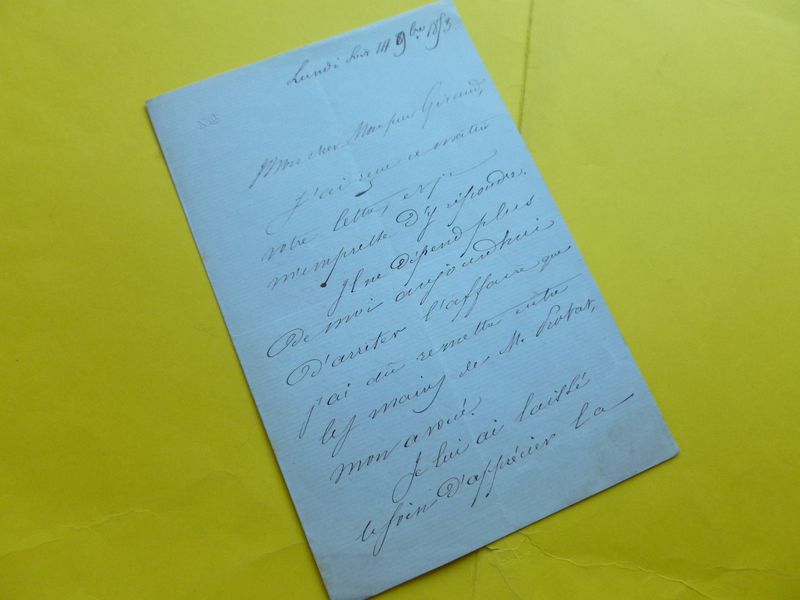 Lundi soir 14 9bre 1853
Mon cher Monsieur Giraud,
J'ai reçu ce matin
votre lettre, et je
m'empresse d'y répondre.
Il ne dépend plus
de moi aujourdhui
d'arrêter l'affaire que
j'ai dû remettre entre
les mains de M.
mon avoué.
Je lui ai laissé
le soin d'apprécier la